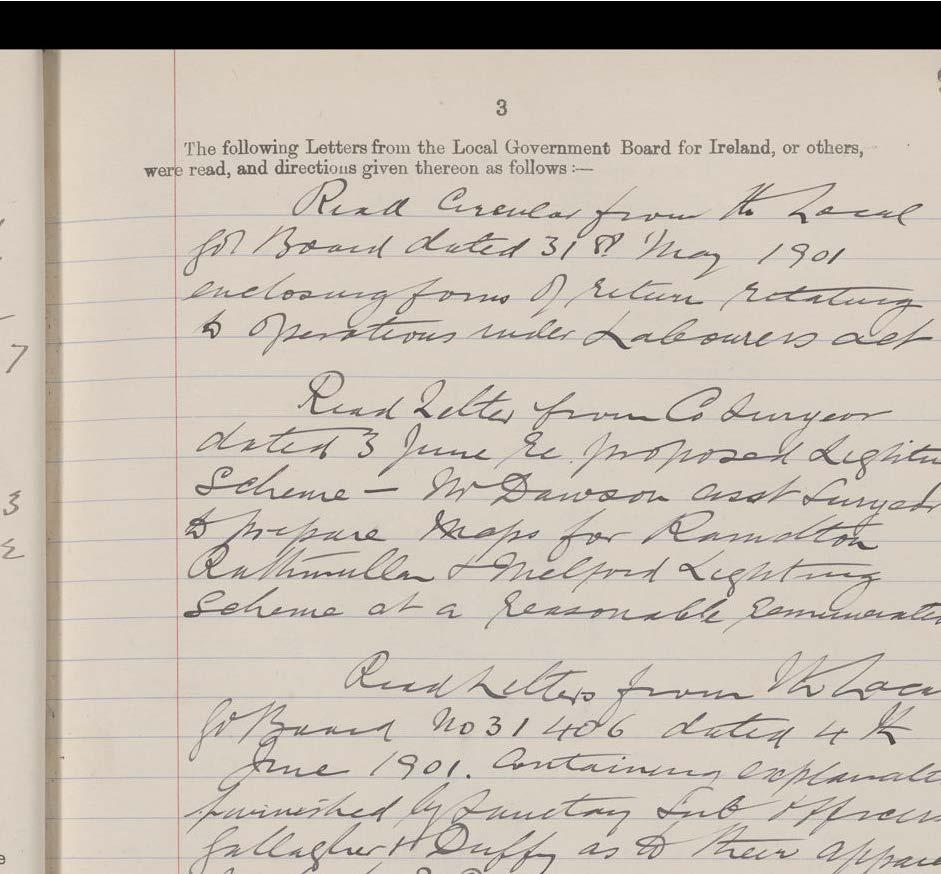 3
The following Letters from the Local Government Board for Ireland, or others,
were read, and directions given thereon as follows :—
Read Circular from the Local
Gov Board dated 31st May 1901
enclosing form of return relating
to operations under Labourers act
Read Letter from Co Surveor
dated 3 June re. proposed Lightin
Scheme — Mr Dawson asst Surveor
to prepare Maps for Ramelton
Rathmullan & Melford Lighting
Scheme at a reasonable remuneratio
Read Letters from the Loca
Gov Board No 31406 dated 4th
June 1901. Containing explanati
furnished by Sanetary Sub officers
Gallagher & Duffy as to their appare
7
3